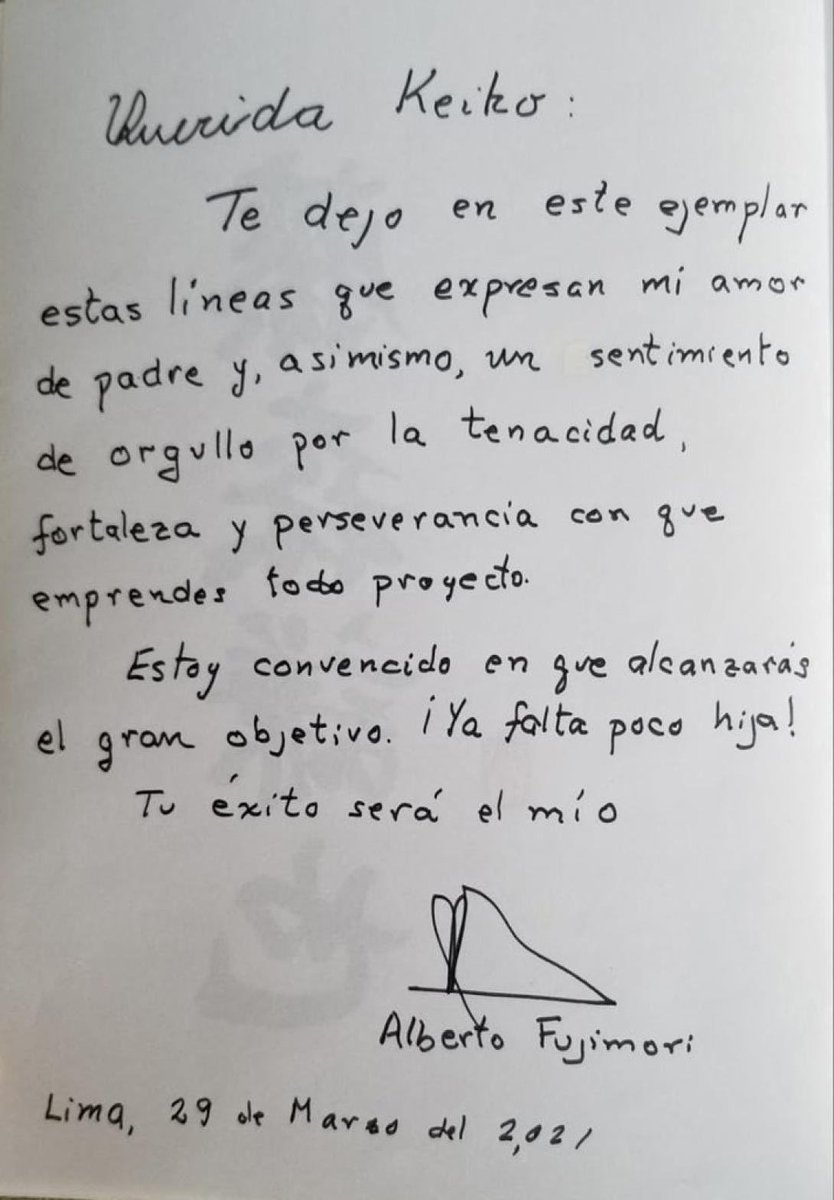 Querida Keiko:
Te dejo en este ejemplar
estas líneas que expresan mi amor
de padre y, asimismo, un sentimiento
de orgullo por la tenacidad,
fortaleza y perseverancia con que
emprendes todo proyecto.
Estoy convencido en que alcanzarás
el gran objetivo. ¡Ya falta poco hija!
Tu éxito será el mío
Alberto Fujimori
Lima, 29 de Marzo del 2,021